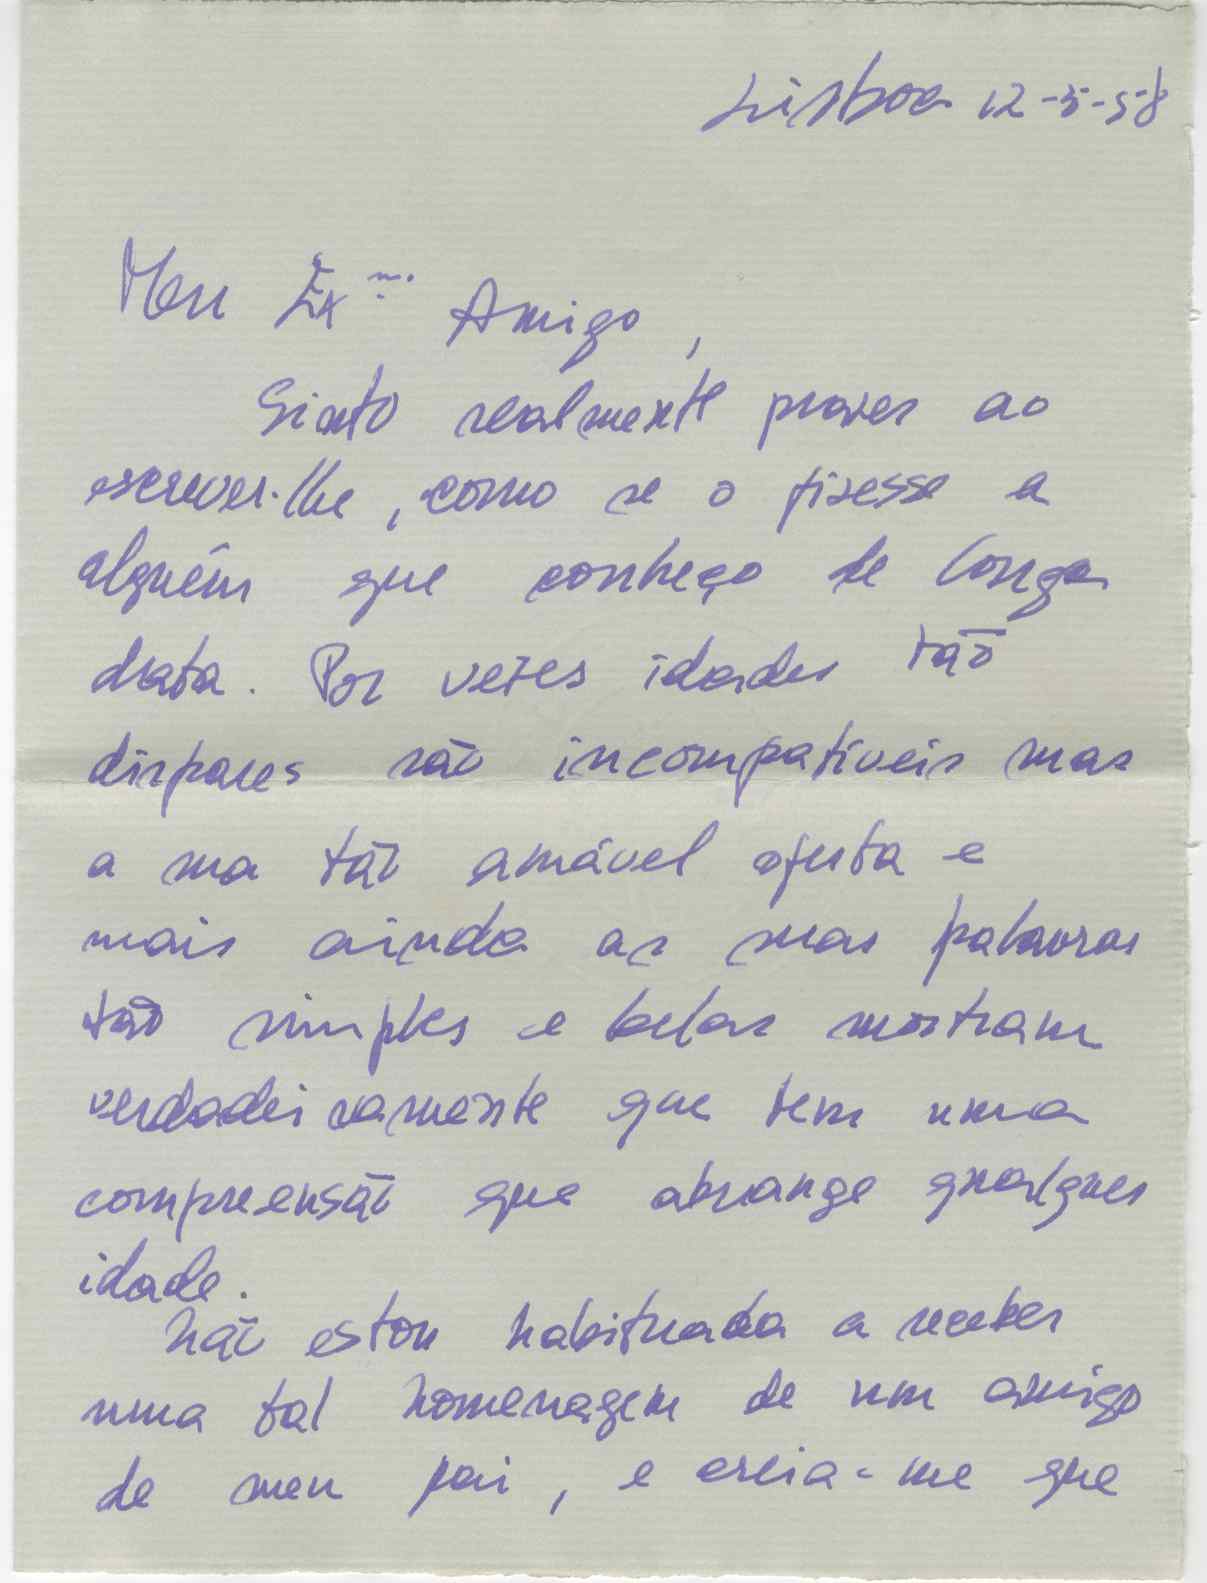 Lisboa 12-5-58
Meu Exmo. Amigo,
Sinto realmente prazer ao
escrever-lhe, como se o fizesse a
alguém que conheço de longa
data. Por vezes idades tão
díspares são incompatíveis mas
a sua tão amável oferta e
mais ainda as suas palavras
tão simples e belas mostram
verdadeiramente que tem uma
compreensão que abrange qualquer
idade.
Não estou habituada a receber
uma tal homenagem de um amigo
de meu pai, e creia-me que